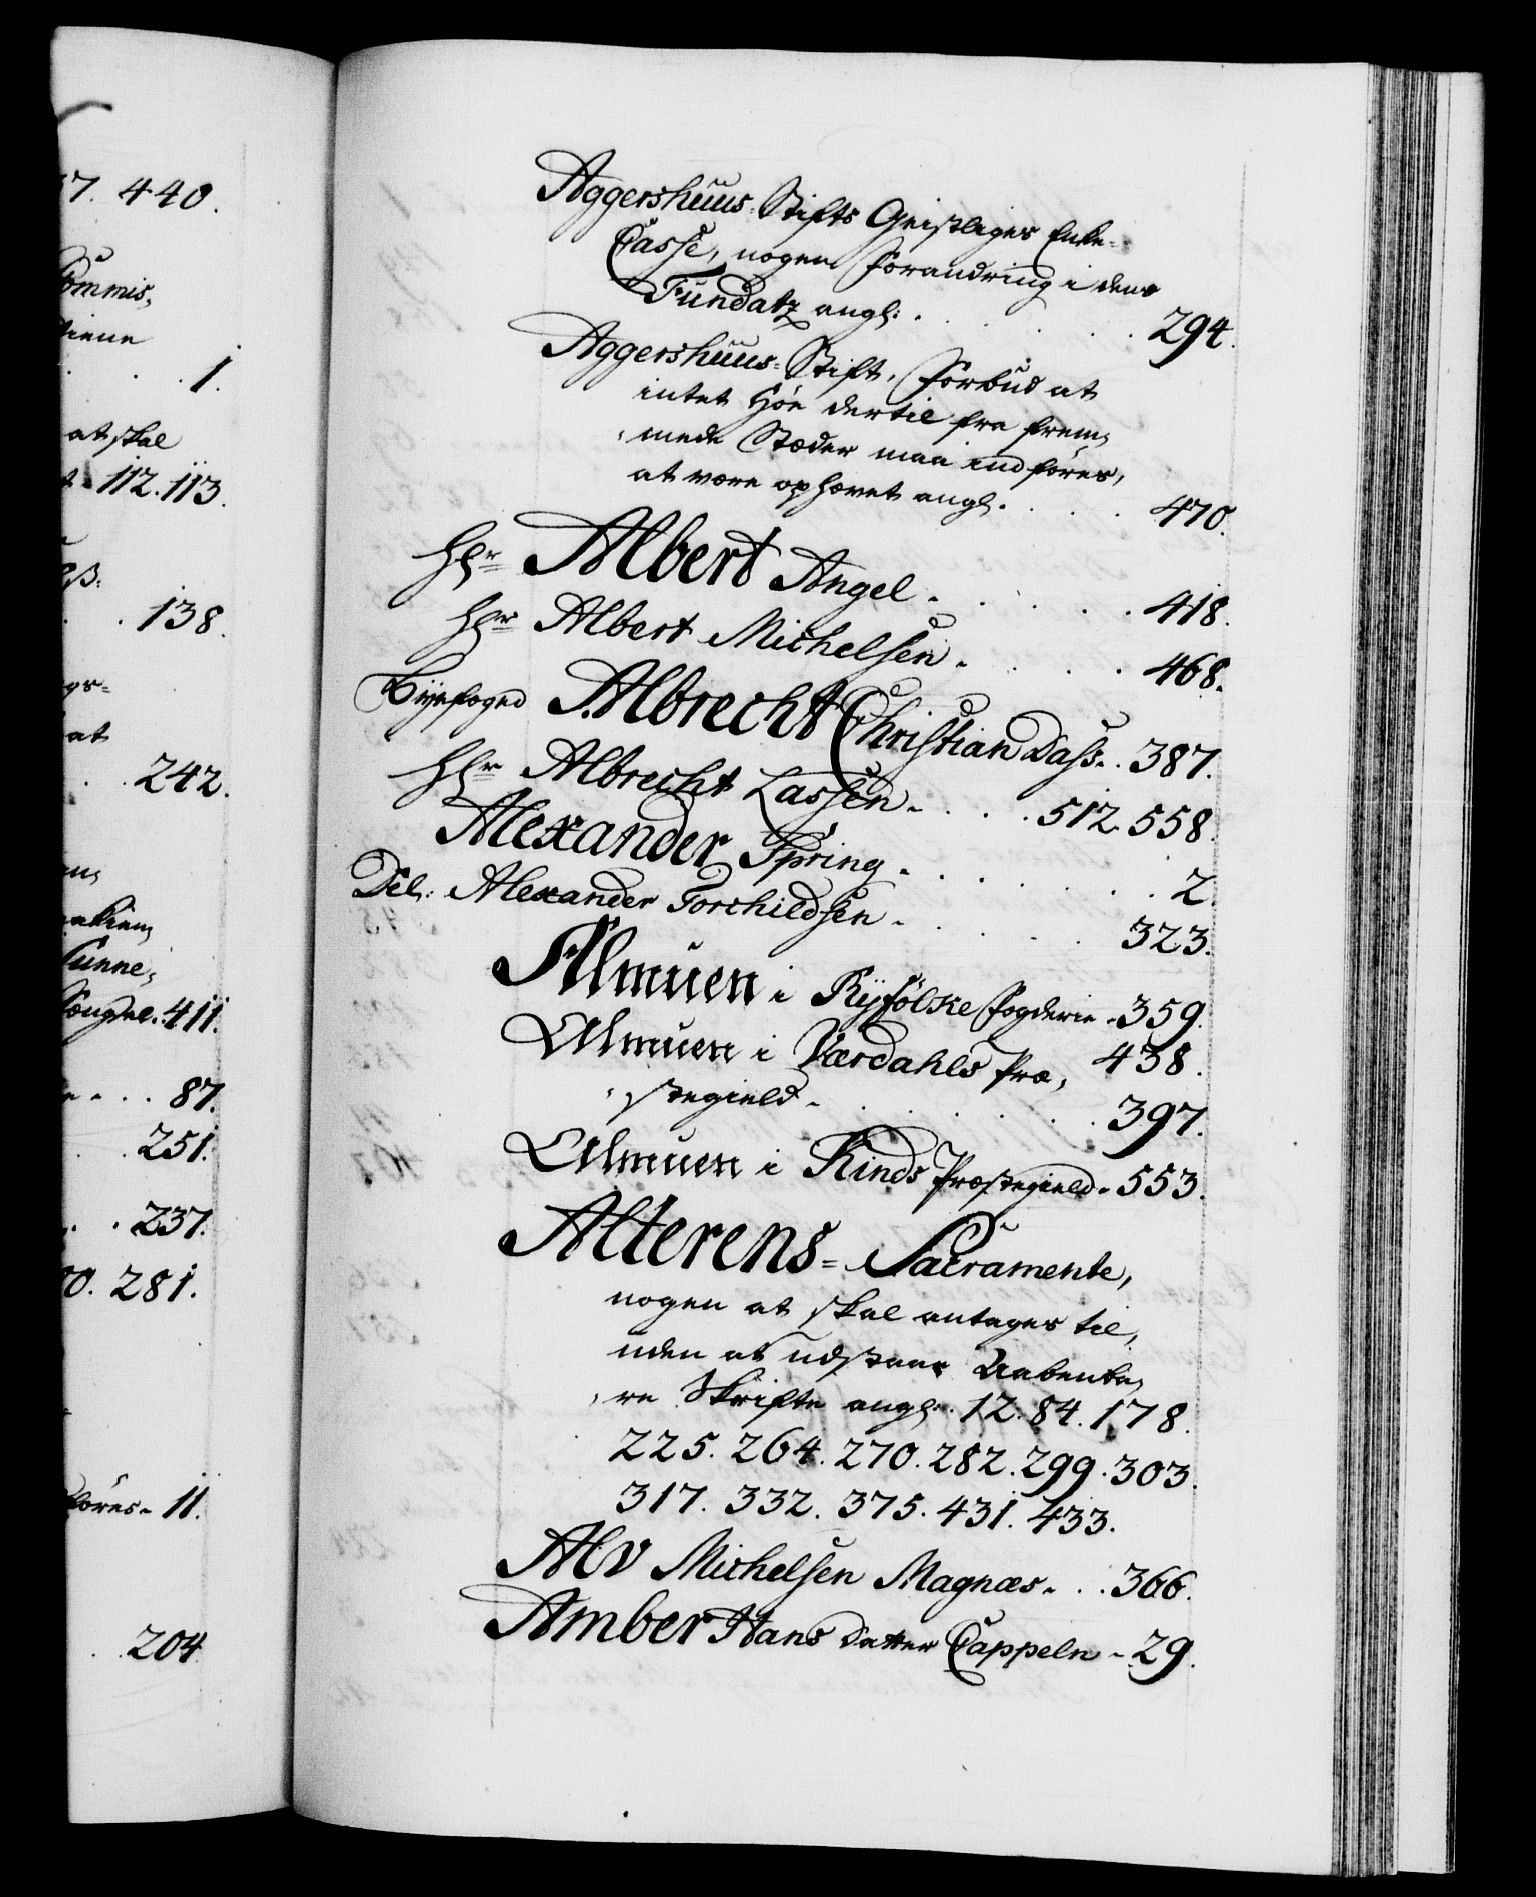 57. 440.
Commis,
tiene
1.
at skal
112. 113.
138.
at
242.
411.
87.
251.
237.
281.
föres 11.
204
Aggershuus Stifts Geistliges Enke-
Casse, nogen Forandring i dens
Fundatz angl: . . . . 294.
Aggershuus Stift, Forbud at
intet Höe dertil fra frem,
mede Stæder maa indföres,
at være ophævet angl. . . . 470.
Hr Albert Angel . . . . 418.
Hr Albert Michelsen . . . . 468.
Byefoged J. Albrecht Christian Dass . . 387.
Hr Albrecht Lassen . . . . 512. 558.
Alexander Spring . . . . . . 2.
Del: Alexander Torchildsen . . . . 323.
Almuen i Ryfölske Fogderie . 359.
438.
Almuen i Værdahls Præ,
stegield . . . . . . 397.
Almuen i Kinds Præstegield . 553.
Alterens = Sacramente,
nogen at skal antages til,
uden at udstaae Aabenba,
re Skrifte angl: . 12. 84. 178.
225. 264. 270. 282. 299. 303.
317. 332. 375. 431. 433.
Alv Michelsen Magnæs . . . 366.
Amber Hans datter Cappeln . 29.